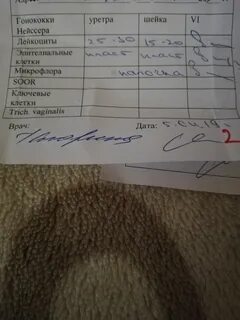 Гонококки уретра шейка VI
Нейссера
Лейкоциты 25-30 15-20
Эпителиальные пласт пласт
клетки
Микрофлора палочка
SOOR
Ключевые
клетки
Trich. vaginalis
Врач: Дата: 5.04.19
2